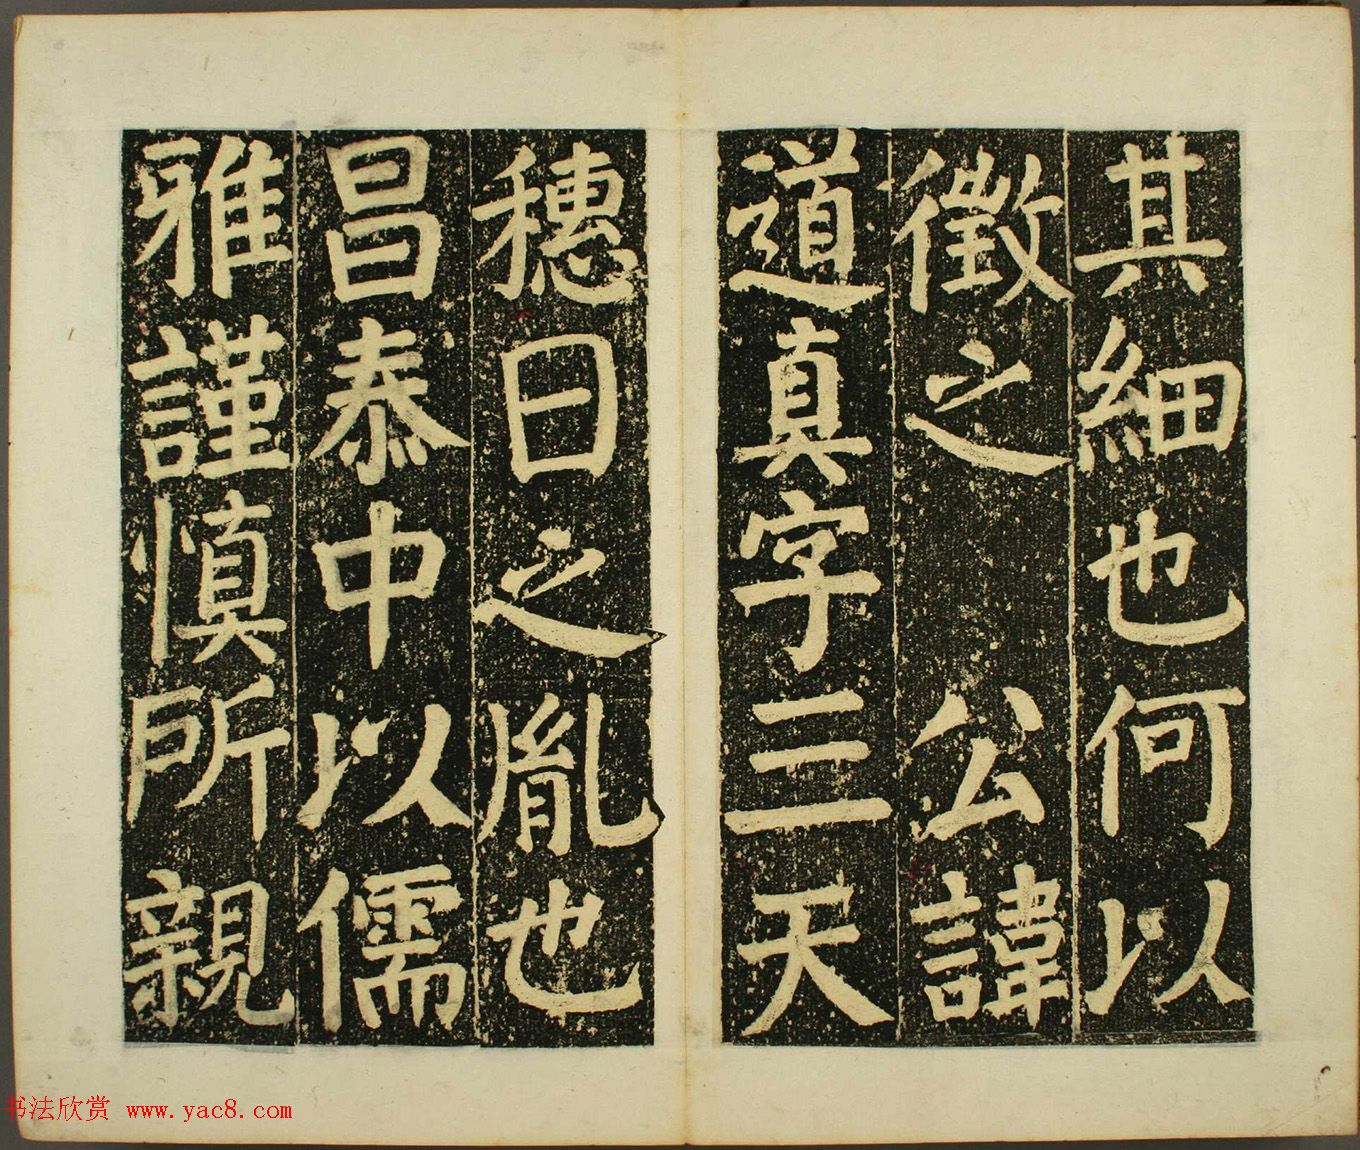 其細也何以
徵之 公諱
道真字三天
穗曰之胤也
昌泰中以儒
雅謹慎所親
书法欣赏 www.yac8.com